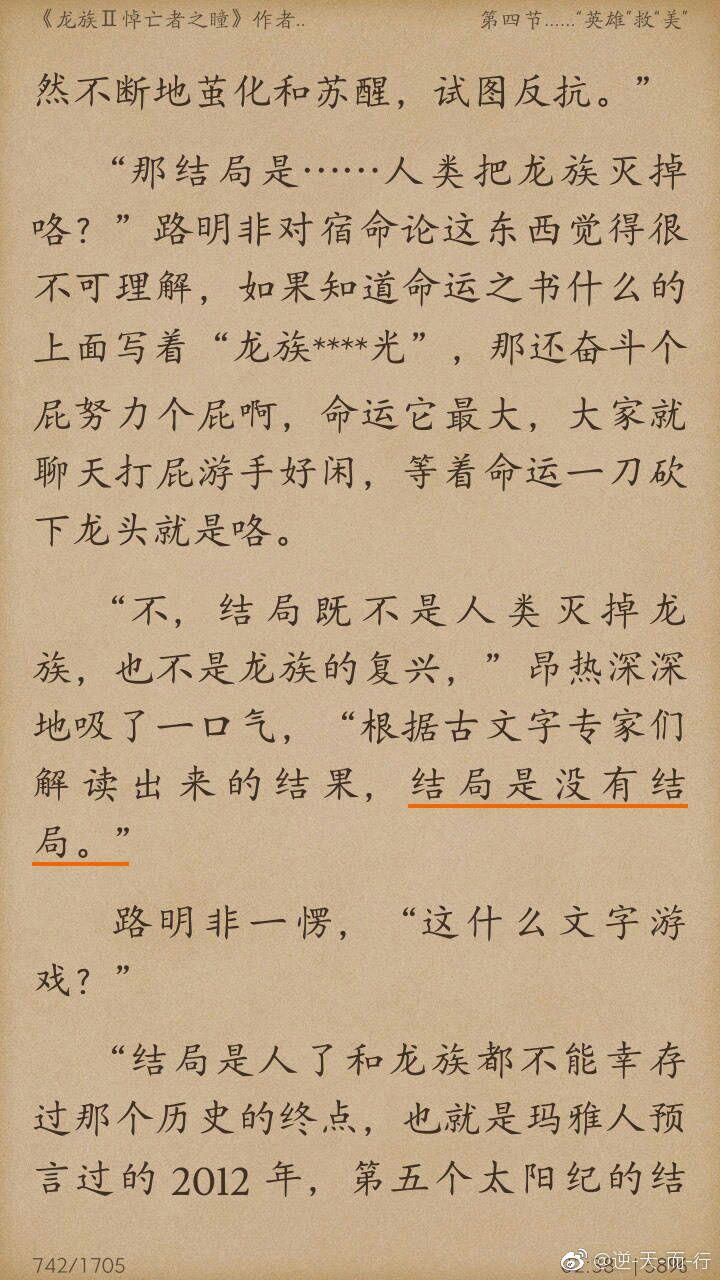 《龙族Ⅱ悼亡者之瞳》作者.. 第四节……“英雄”救“美”
然不断地茧化和苏醒，试图反抗。”
“那结局是……人类把龙族灭掉
咯？”路明非对宿命论这东西觉得很
不可理解，如果知道命运之书什么的
上面写着“龙族****光”，那还奋斗个
屁努力个屁啊，命运它最大，大家就
聊天打屁游手好闲，等着命运一刀砍
下龙头就是咯。
“不，结局既不是人类灭掉龙
族，也不是龙族的复兴，”昂热深深
地吸了一口气，“根据古文字专家们
解读出来的结果，结局是没有结
局。”
路明非一愣，“这什么文字游
戏？”
“结局是人了和龙族都不能幸存
过那个历史的终点，也就是玛雅人预
言过的 2012 年，第五个太阳纪的结
742/1705
@逆-天-而-行